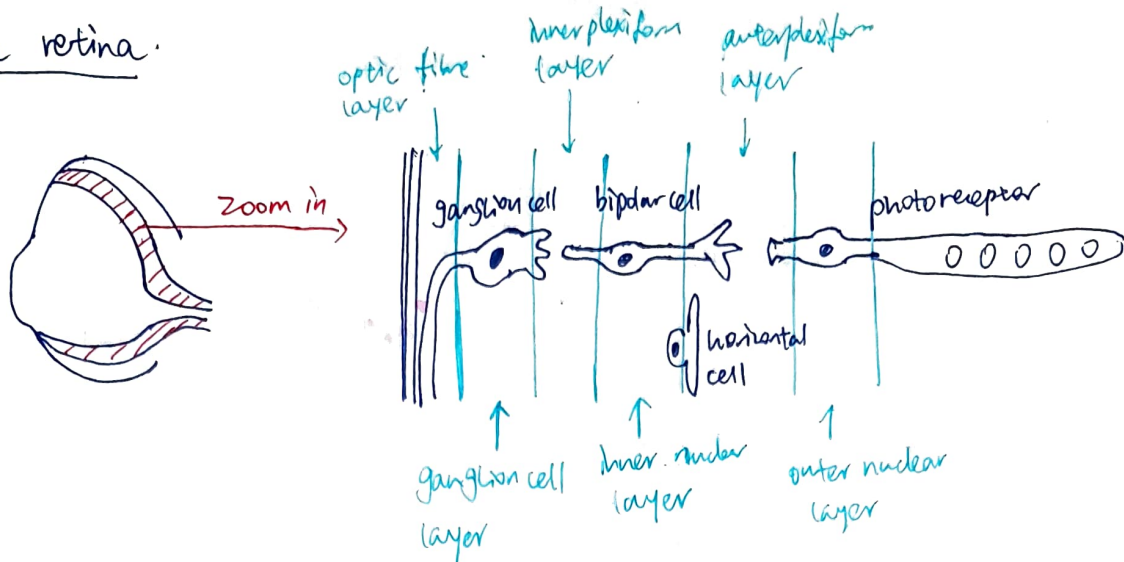 retina.
optic fibre
layer
inner plexiform
layer
outerplexiform
layer
Zoom in
ganglion cell
bipolar cell
photoreceptor
horizontal
cell
ganglion cell
layer
inner nuclear
layer
outer nuclear
layer